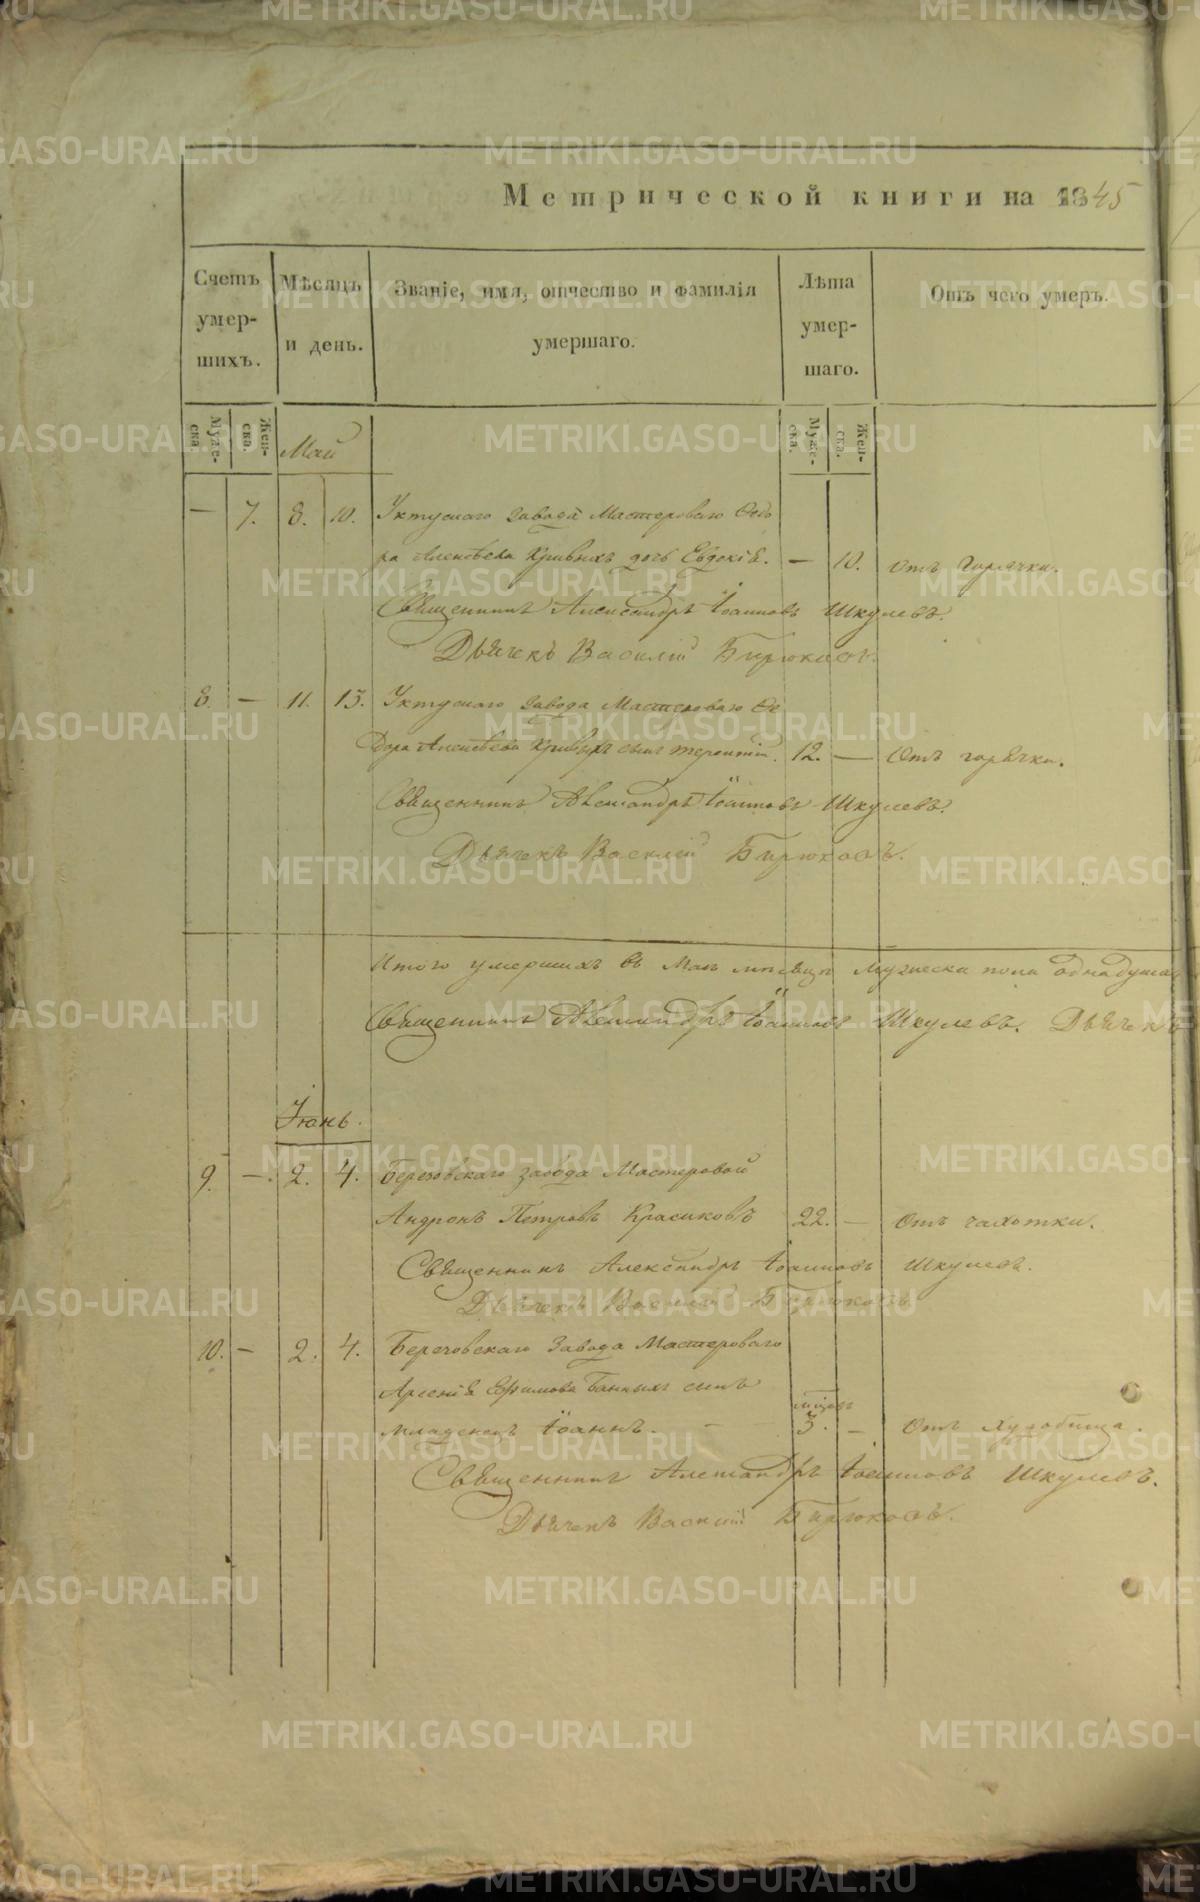 Метрической книги на 1845
Счетъ умер-шихъ.
Мѣсяцъ и день.
Званіе, имя, отчество и фамилія умершаго.
Лѣта умер-шаго.
Отъ чего умеръ.
Муже-ска.
Жен-ска.
Муже-ска.
Жен-ска.
Май
— 7. 8. 10. Уктускаго завода Мастероваго Ѳедо
ра Алексѣева Кривыхъ дочь Евдокія. — 10. отъ горячки.
Священникъ Александръ Іоанновъ Шкулевъ.
Дьячекъ Василій Бирюковъ.
8. — 11. 13. Уктускаго завода Мастероваго Ѳе
дора Алексѣева Кривыхъ сынъ Терентій. 12. — Отъ горячки.
Священникъ Александръ Іоанновъ Шкулевъ.
Дьячекъ Василій Бирюковъ.
Итого умершихъ въ Маѣ мѣсяцѣ мужеска пола одна душа
Священникъ Александръ Іоанновъ Шкулевъ. Дьячекъ
Іюнь.
9. —. 2. 4. Березовскаго завода Мастеровой
Андронъ Петровъ Красиковъ 22. — Отъ чахотки.
Священникъ Александръ Іоанновъ Шкулевъ.
Дьячекъ Василій Бирюковъ.
10. — 2. 4. Березовскаго Завода Мастероваго
Арсенія Ефимова Банныхъ сынъ
младенецъ Іоаннъ. — мѣсяц 3. — Отъ худобища.
Священникъ Александръ Іоанновъ Шкулевъ.
Дьячекъ Василій Бирюковъ.
METRIKI.GASO-URAL.RU